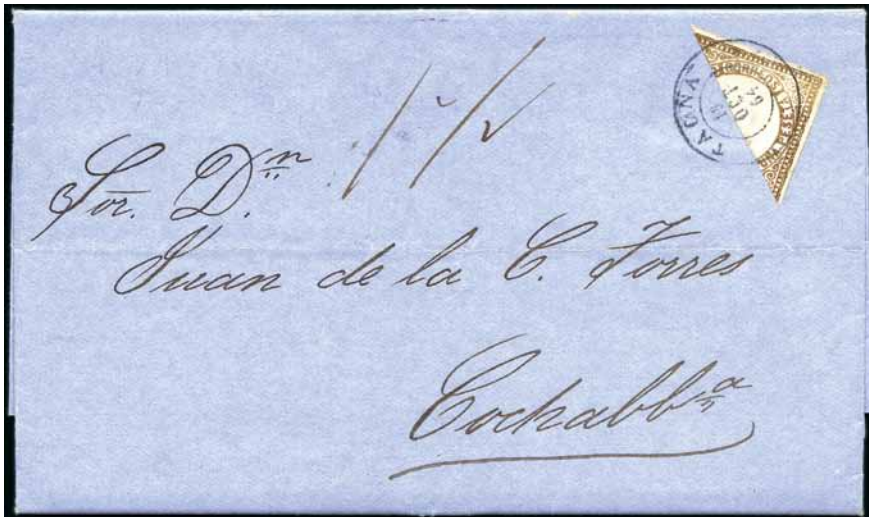 TACNA
19
OCT
64
Sor. Dn
Juan de la C. Torres
Cochabba